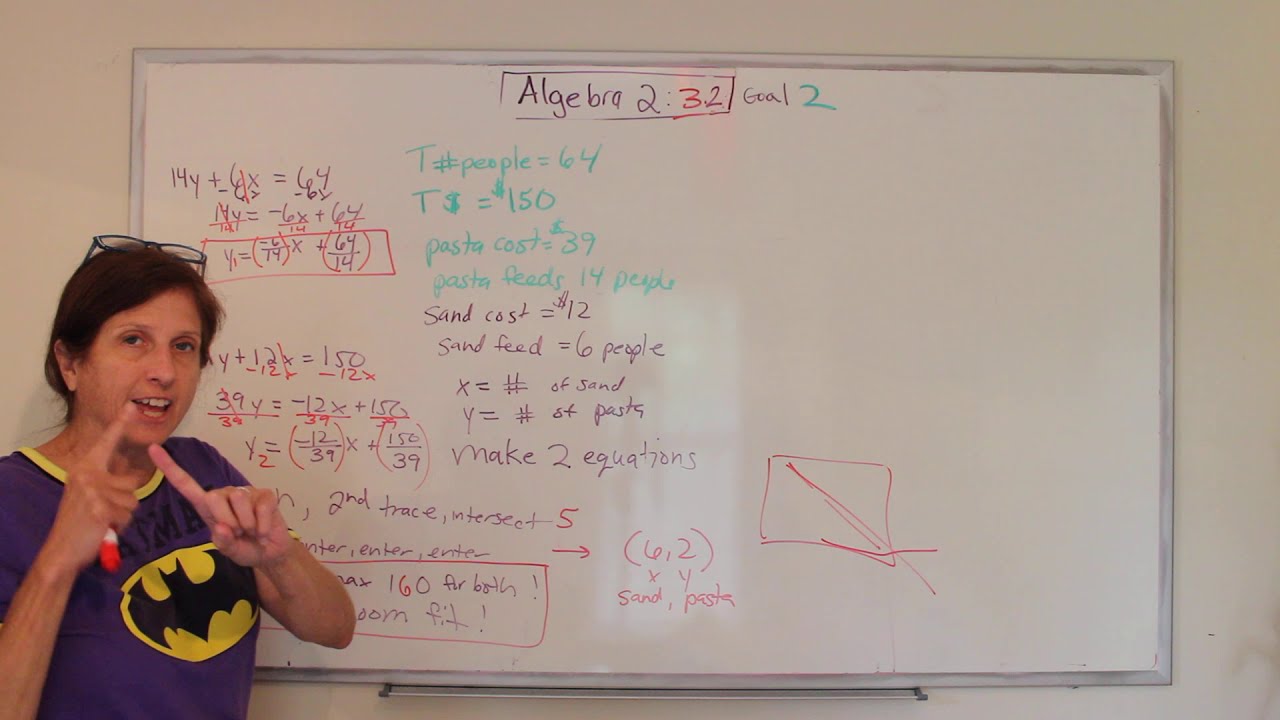 Algebra 2: 3.2 Goal 2
14y + 6x = 64
-6x -6x
14y = -6x + 64
14 14 14
y1 = (-6/14)x + (64/14)
y + 12x = 150
-12x -12x
39y = -12x + 150
39 39 39
y2 = (-12/39)x + (150/39)
h, 2nd trace, intersect 5
enter, enter, enter
max 160 for both!
oom fit!
T # people = 64
T $ = $150
pasta cost = $39
pasta feeds 14 people
Sand cost = $12
Sand feed = 6 people
x = # of sand
y = # of pasta
make 2 equations
→ (6,2)
x y
sand, pasta